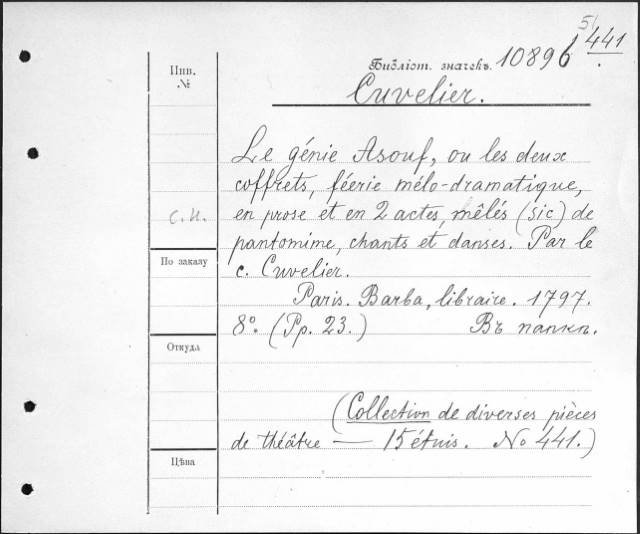 51
441
Библіот. значекъ. 10896
Cuvelier.
Инв.
№
Le génie Asouf, ou les deux
coffrets, féerie mélo-dramatique,
en prose et en 2 actes, mêlés (sic) de
pantomime, chants et danses. Par le
c. Cuvelier.
Paris. Barba, libraire. 1797.
8º. (Pp. 23.) Въ папкѣ.
(Collection de diverses pièces
de théâtre — 15 étuis. No 441.)
с. и.
По заказу
Откуда
Цѣна